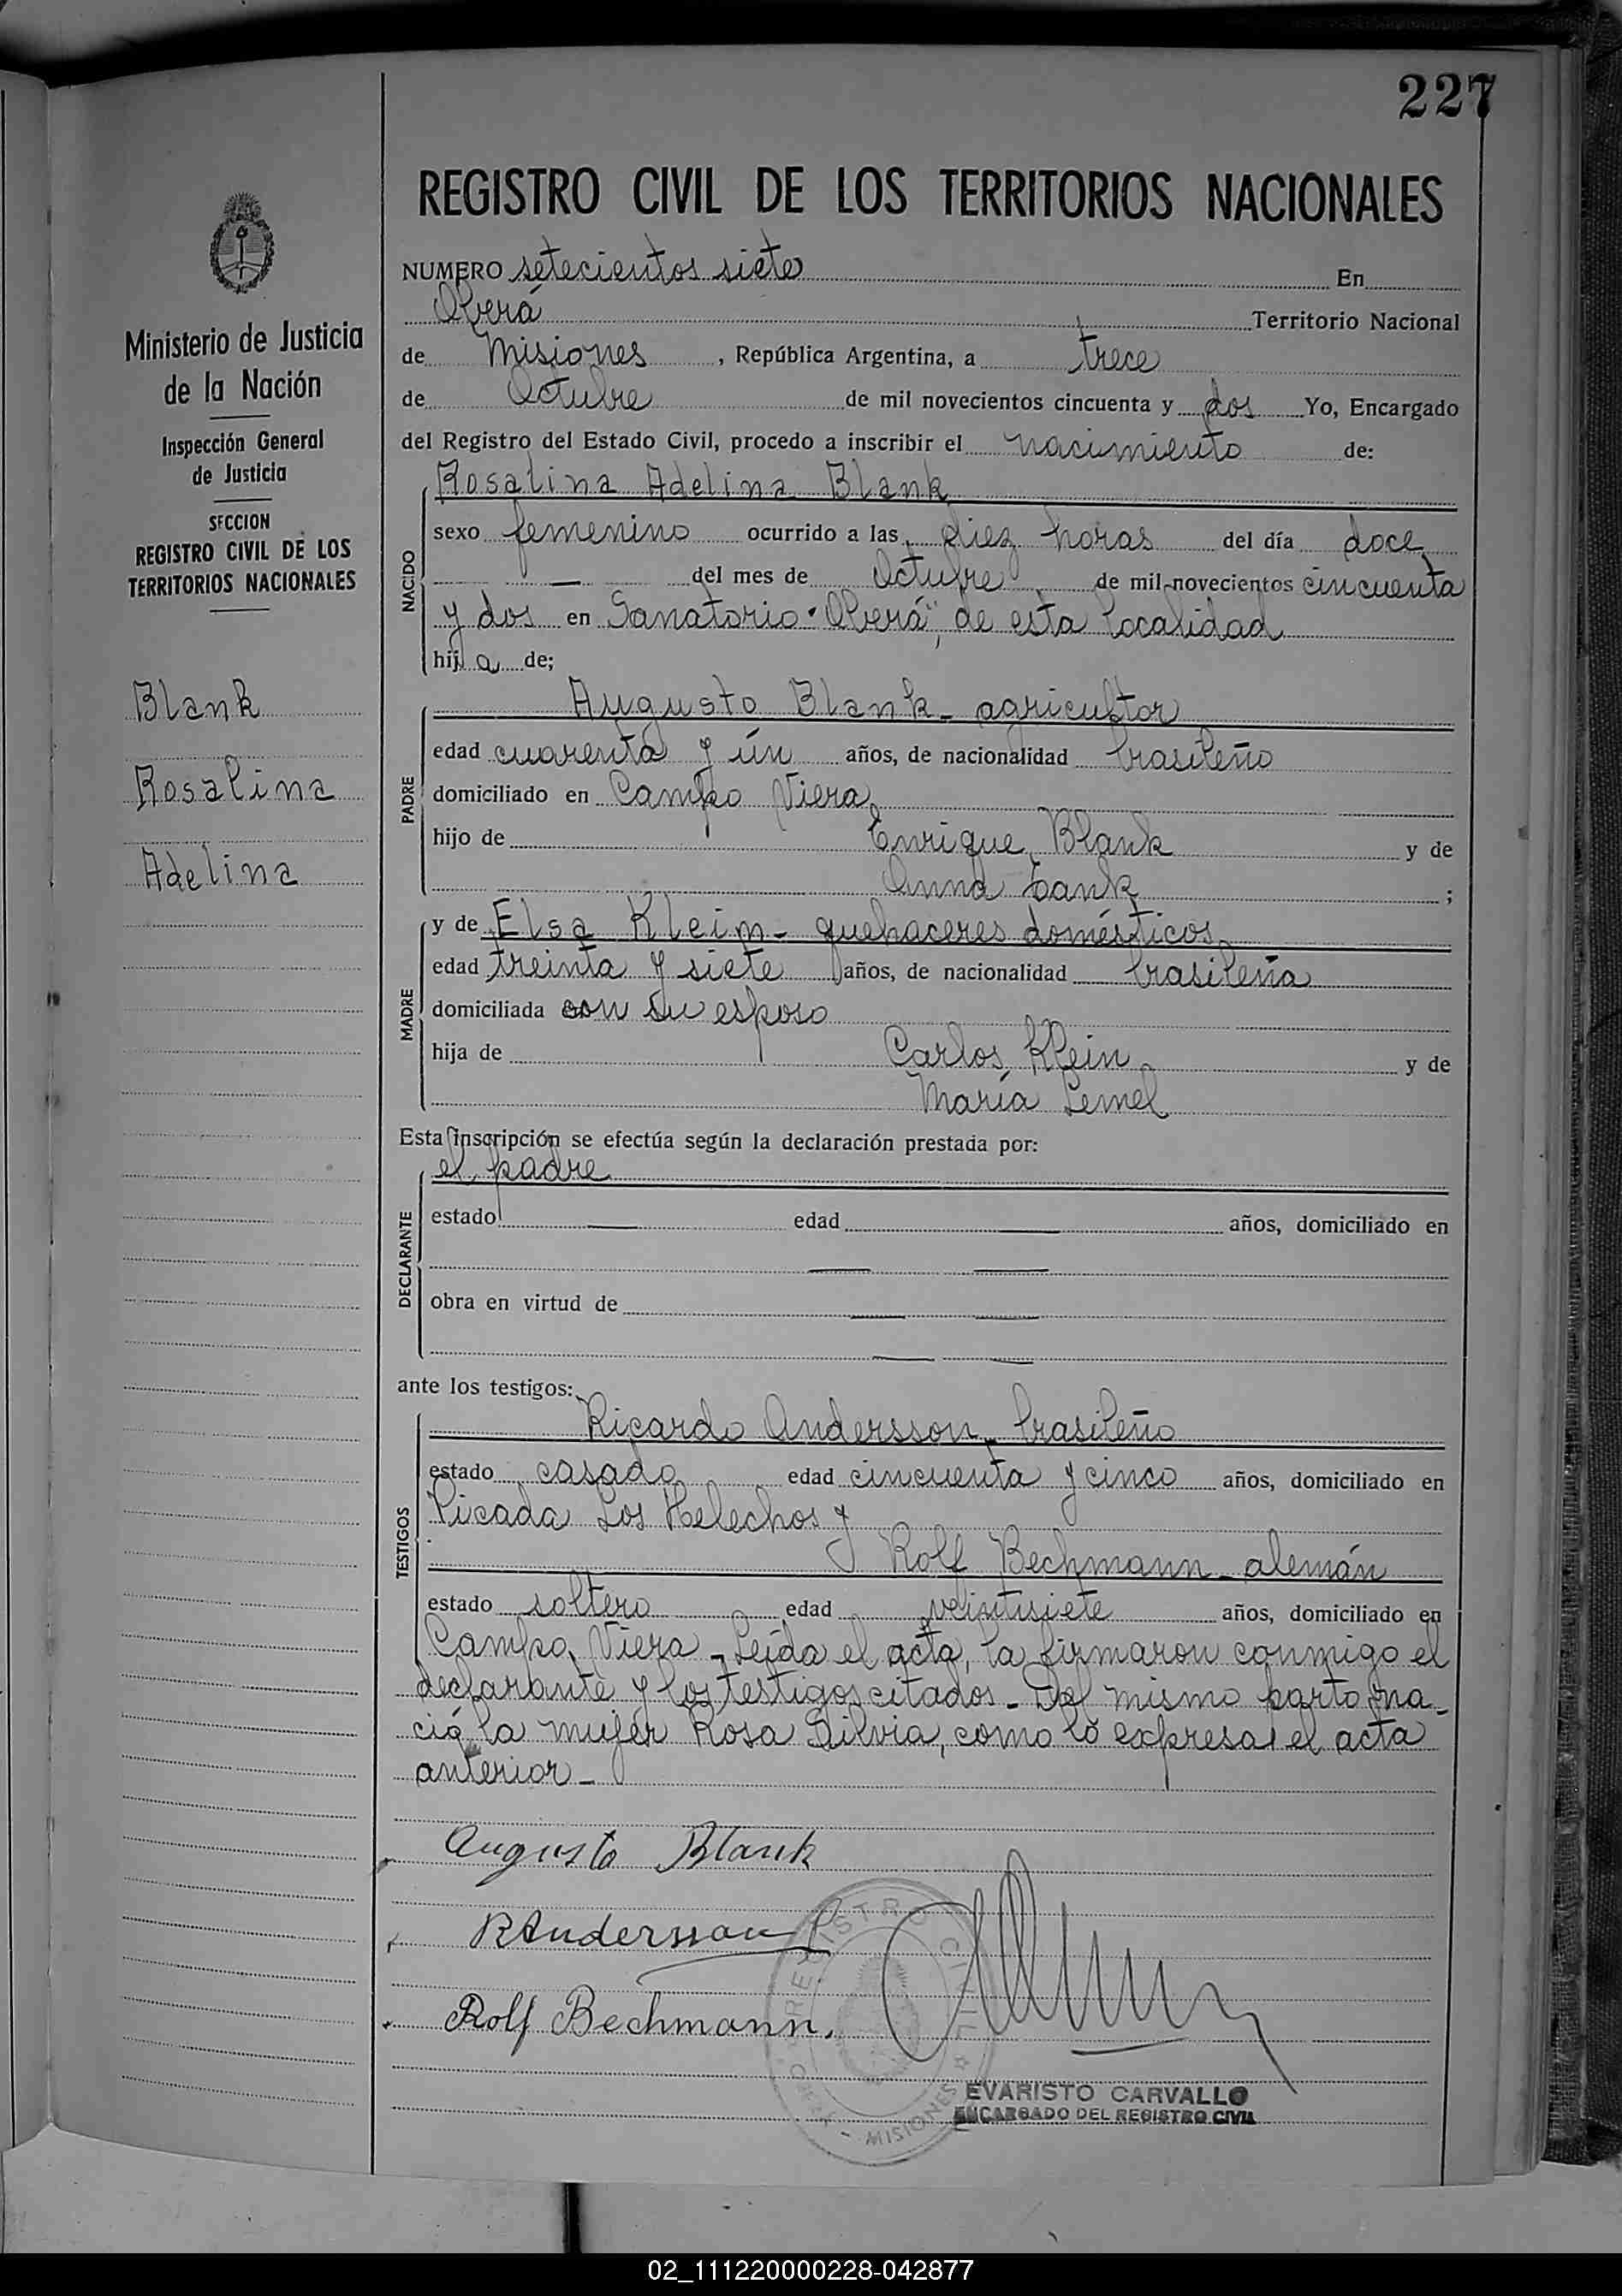 227
REGISTRO CIVIL DE LOS TERRITORIOS NACIONALES
Ministerio de Justicia
de la Nación
Inspección General
de Justicia
SECCION
REGISTRO CIVIL DE LOS
TERRITORIOS NACIONALES
Blank
Rosalina
Adelina
NUMERO setecientos siete En
Oberá Territorio Nacional
de Misiones, República Argentina, a trece
de Octubre de mil novecientos cincuenta y dos Yo, Encargado
del Registro del Estado Civil, procedo a inscribir el nacimiento de:
Rosalina Adelina Blank
NACIDO
sexo femenino ocurrido a las diez horas del día doce
— del mes de Octubre de mil novecientos cincuenta
y dos en Sanatorio "Oberá", de esta localidad
hija de;
PADRE
Augusto Blank - agricultor
edad cuarenta y ún años, de nacionalidad brasileño
domiciliado en Campo Viera,
hijo de Enrique Blank y de
Anna Zank ;
MADRE
y de Elsa Kleim - quehaceres domésticos,
edad treinta y siete años, de nacionalidad brasileña
domiciliada con su esposo
hija de Carlos Klein y de
María Lemel
Esta inscripción se efectúa según la declaración prestada por:
DECLARANTE
el padre
estado — edad — años, domiciliado en
— —
obra en virtud de — —
— —
ante los testigos:
TESTIGOS
Ricardo Andersson - brasileño
estado casado edad cincuenta y cinco años, domiciliado en
Picada Los Helechos y
Rolf Bechmann - alemán
estado soltero edad veintisiete años, domiciliado en
Campo Viera - Leída el acta, la firmaron conmigo el
declarante y los testigos citados - Del mismo parto na-
ció la mujer Rosa Silvia, como lo expresa el acta
anterior -
Augusto Blank
RAndersson
Rolf Bechmann.
REGISTRO CIVIL
MISIONES
EVARISTO CARVALLO
ENCARGADO DEL REGISTRO CIVIL
02_111220000228-042877